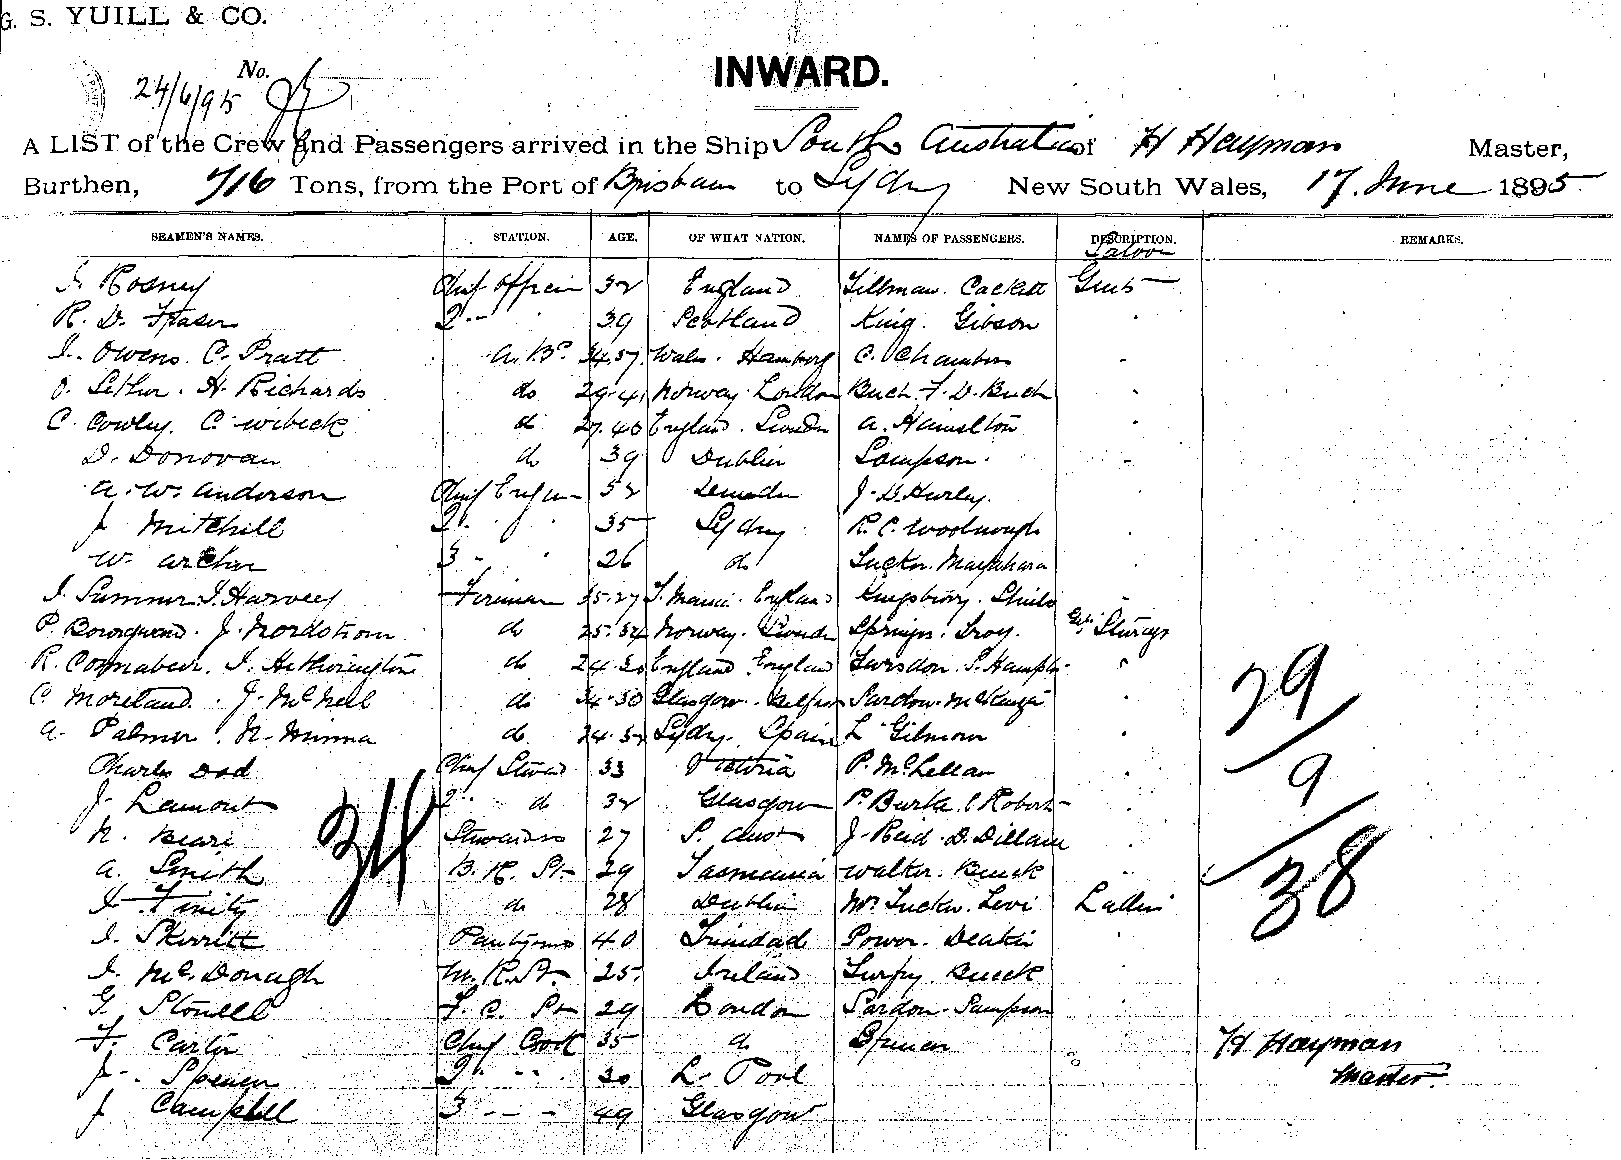 G. S. YUILL & CO.
INWARD.
24/6/95 No.
A LIST of the Crew and Passengers arrived in the Ship South Australian of H Hayman Master,
Burthen, 716 Tons, from the Port of Brisbane to Sydny New South Wales, 17. June 1895
SEAMEN'S NAMES. STATION. AGE. OF WHAT NATION. NAMES OF PASSENGERS. DESCRIPTION. REMARKS.
Saloon
J. Rosney Chief Officer 32 England Tillman. Cackett Gents
R. D. Fraser 2 " " 39 Scotland King. Gibson
J. Owens. C. Pratt A.B.s 34.57 Wales. Hamburg C. Chambers
H. Richards do 29.41 Norway. London Buch. F. D. Buch
C. Cowley. C. Wibeck do 27.40 England. London A. Hamilton
D. Donovan do 39 Dublin Sampson.
A. W. Anderson Chief Engin 52 J. D. Hurley.
J Mitchell 2 " " 35 Sydny R. C. Woolnough
W. Archer 3 " " 26 do Tucker.
J. Sumner. J. Harvey Fireman 35.27 England Kingsbury. Shiels
J. Nordstrom do 25.34 Norway. Springs. Troy. Sturages
R. J. Hetherington do 24.30 England England S. Hampton
C. Moreland. J. McNeil do 34.30 Glasgow. Belfast McKenzie
A. Palmer. do 24.34 Sydny. Spain L Gilmour
29
Charles Dod Chief Steward 33 Victoria P. McLellan
9
J. Lamont 2 " do 32 Glasgow P. Burke. C Roberts
34
N. Stewardess 27 S. Aust J. Reid. D. Dillain
38
A. Smith B. R. St 29 Tasmania Walter.
J. Finity do 28 Dublin Mrs Tucker. Levi Ladies
J. Skerritt Pantryman 40 Trinidad Power. Deakin
J. McDonagh M. R. St. 25. Ireland
G. Stowell F. C. St 29 London Sampson
F. Carter Chief Cook 35 do Spencer
H Hayman
J. Spencer 2 " " 30 L. Pool
Master.
J Campbell 3 - - - 49 Glasgow